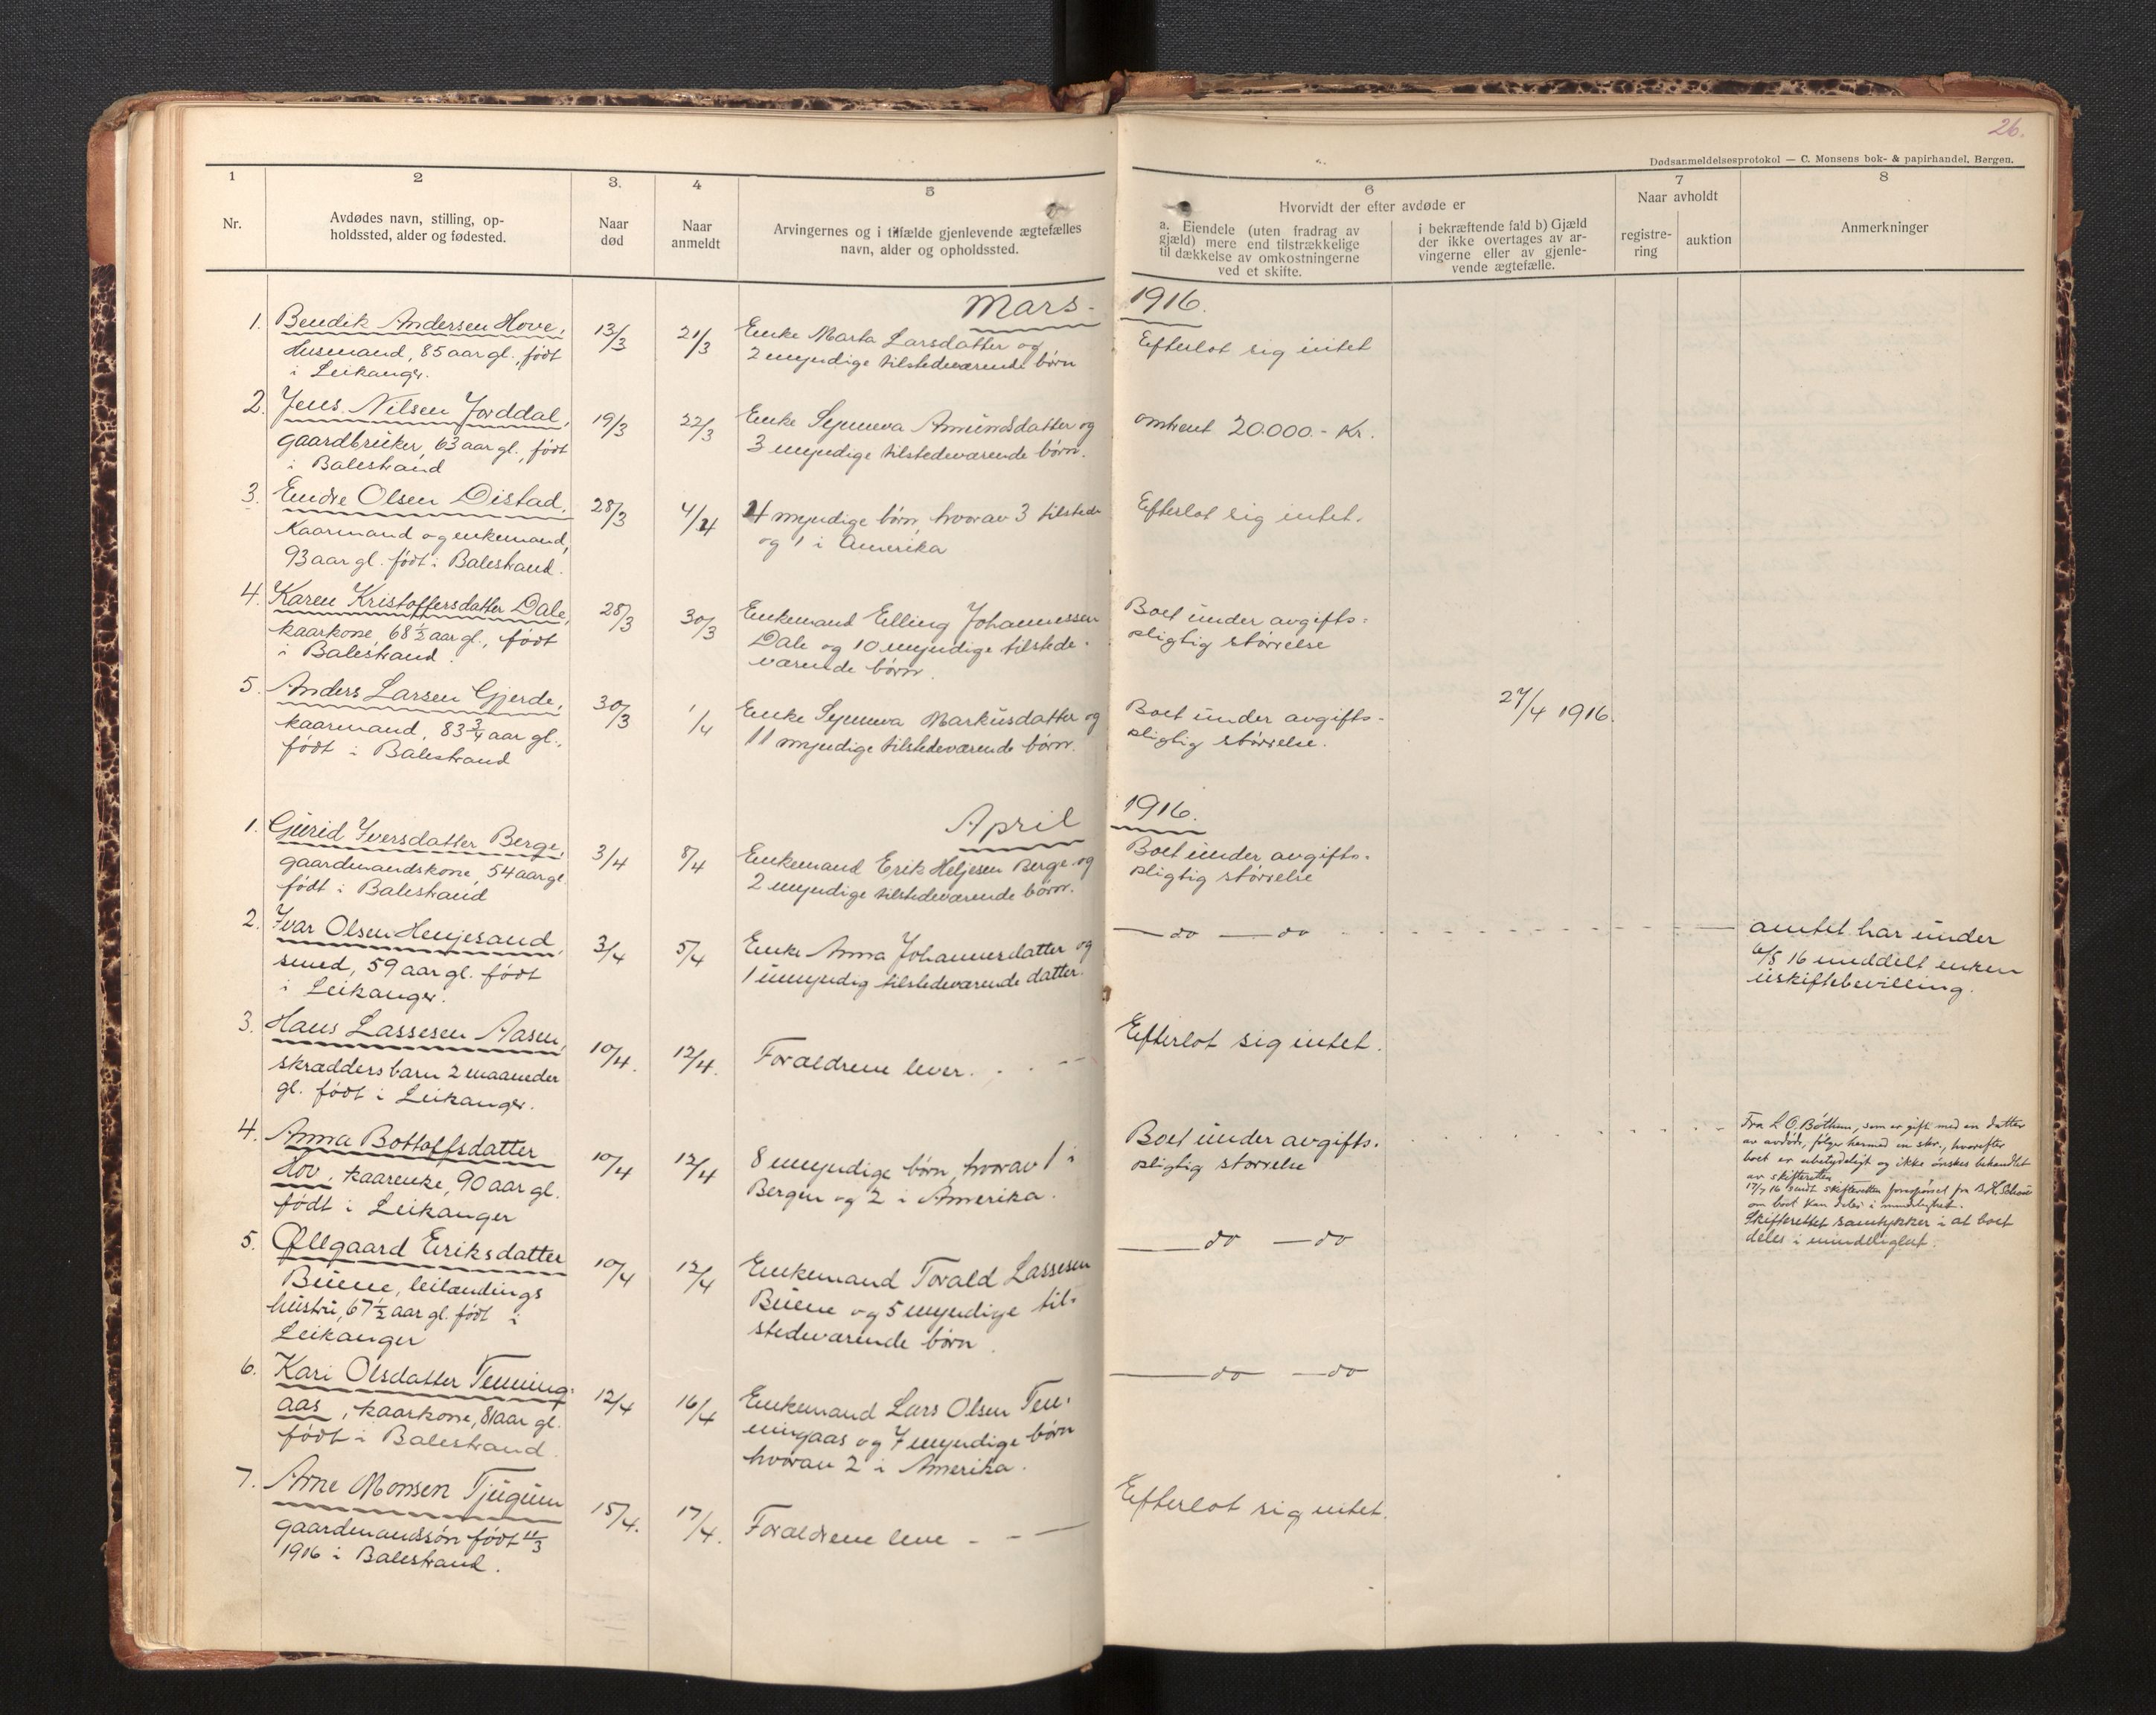 26.
Dødsanmeldelsesprotokol — C. Monsens bok- & papirhandel, Bergen.
1
2
3.
4
5
6
7
8
Nr.
Avdødes navn, stilling, op-
holdssted, alder og fødested.
Naar
død
Naar
anmeldt
Arvingernes og i tilfælde gjenlevende ægtefælles
navn, alder og opholdssted.
Hvorvidt der efter avdøde er
a. Eiendele (uten fradrag av
gjæld) mere end tilstrækkelige
til dækkelse av omkostningerne
ved et skifte.
i bekræftende fald b) Gjæld
der ikke overtages av ar-
vingerne eller av gjenle-
vende ægtefælle.
Naar avholdt
registre-
ring
auktion
Anmerkninger
Mars - 1916.
1. Bendik Andersen Hove,
Husmand, 85 aar gl., født
i Leikanger.
13/3
21/3
Enke Marta Larsdatter og
2 myndige tilstedeværende børn
Efterlot sig intet
2. Jens Nilsen Jorddal,
gaardbruker, 63 aar gl., født
i Balestrand
19/3
22/3
Enke Synneva Amundsdatter og
3 myndige tilstedeværende børn.
omtrent 20.000.- Kr.
3. Endre Olsen Distad,
Kaarmand og enkemand,
93 aar gl. født i Balestrand.
28/3
4/4
4 myndige børn, hvorav 3 tilstede
og 1 i Amerika
Efterlot sig intet.
4. Karen Kristoffersdatter Dale,
kaarkone, 68 1/2 aar gl., født
i Balestrand.
28/3
30/3
Enkemand Elling Johannessen
Dale og 10 myndige tilstede-
værende børn.
Boet under avgifts-
pligtig størrelse
5. Anders Larsen Gjerde,
kaarmand, 83 3/4 aar gl.,
født i Balestrand
30/3
1/4
Enke Synneva Markusdatter og
11 myndige tilstedeværende børn.
Boet under avgifts-
pligtig størrelse.
27/4 1916.
April 1916.
1. Gurid Iversdatter Berge,
gaardmandskone, 54 aar gl.
født i Balestrand
3/4
8/4
Enkemand Erik Heljesen Berge og
2 myndige tilstedeværende børn.
Boet under avgifts-
pligtig størrelse
2. Ivar Olsen Henjesand,
smed, 59 aar gl. født
i Leikanger.
3/4
5/4
Enke Anna Johannesdatter og
1 umyndig tilstedeværende datter.
— do — do
amtet har under
6/5 16 meddelt enken
uskiftebevilling.
3. Hans Lassesen Aasen,
skrædders barn 2 maaneder
gl. født i Leikanger.
10/4.
12/4.
Forældrene lever. - - -
Efterlot sig intet.
4. Anna Bottolfsdatter
Hov, kaarenke, 90 aar gl.
født i Leikanger
10/4
12/4
8 myndige børn, hvorav 1 i
Bergen og 2 i Amerika.
Boet under avgifts-
pligtig størrelse
Fra L O. Bøthun, som er gift med en datter
av avdøde, følger hermed en skr., hvorefter
boet er ubetydeligt og ikke ønskes behandlet
av skifteretten
17/7 16 sendt skifteretten forespørsel fra B. H.
om boet kan deles i mindelighet.
Skifterettet samtykker i at boet
deles i mindelighet.
5. Ollgaard Eriksdatter
Buene, leilændings
hustru, 67 1/2 aar gl. født i
Leikanger
10/4
12/4
Enkemand Torald Lassesen
Buene og 5 myndige til-
stedeværende børn.
— do — do
6. Kari Olsdatter Tenning-
aas, kaarkone, 81 aar gl.
født i Balestrand.
12/4
16/4
Enkemand Lars Olsen Ten-
ningaas og 7 myndige børn
hvorav 2 i Amerika.
— do — do
7. Arne Monsen Tjugum
gaardmandssøn født 11/3
1916 i Balestrand.
15/4.
17/4.
Forældrene leve - - —
Efterlot sig intet.